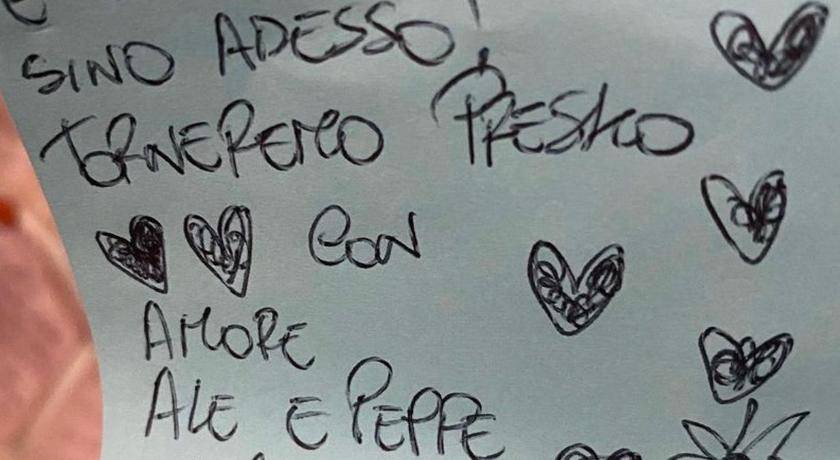 SINO ADESSO!
TORNEREMO PRESTO
CON
AMORE
ALE E PEPPE